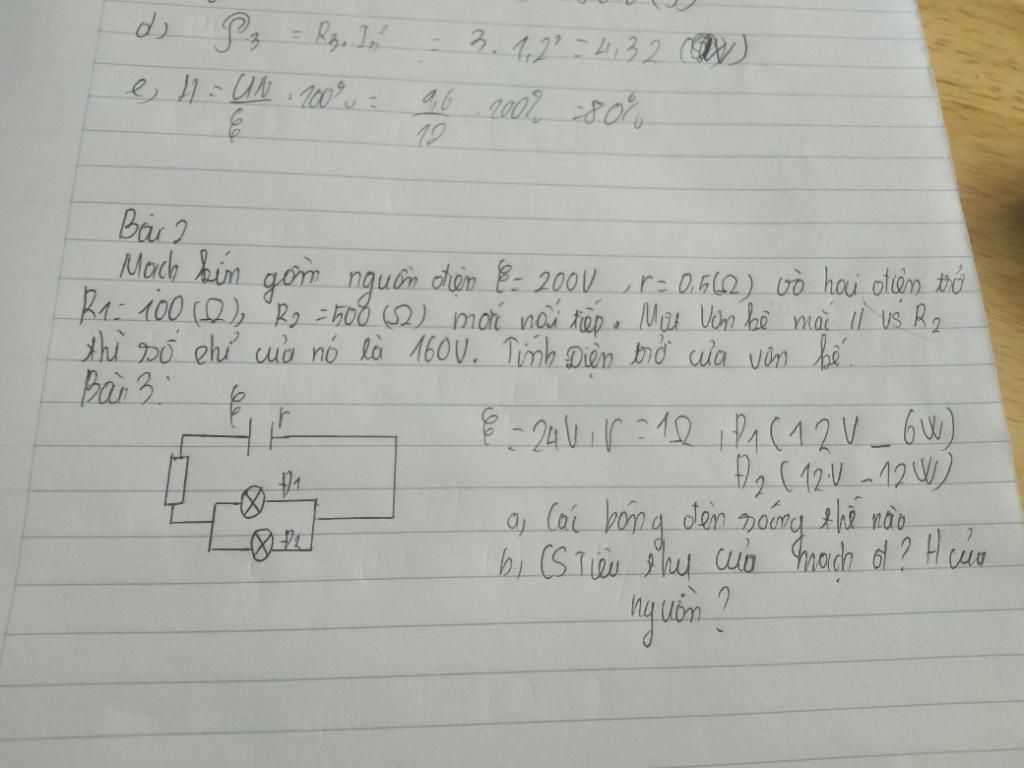 d, P3 = R3. In² = 3. 1,2² = 4,32 (W)
e, H = UN/ξ . 100% = 9,6/12 . 100% = 80%
Bài 2
Mạch kín gồm nguồn điện ξ = 200V , r = 0,5(Ω) và hai điện trở
R1 = 100 (Ω), R2 = 500 (Ω) mắc nối tiếp. Một Vôn kế mắc // vs R2
thì số chỉ của nó là 160V. Tính điện trở của vôn kế.
Bài 3:
ξ r
ξ = 24V, r = 1Ω , Đ1 (12V - 6W)
Đ2 (12V - 12W)
Đ1
Đ2
a, Các bóng đèn sáng thế nào
b, CS Tiêu thụ của mạch d? H của
nguồn?